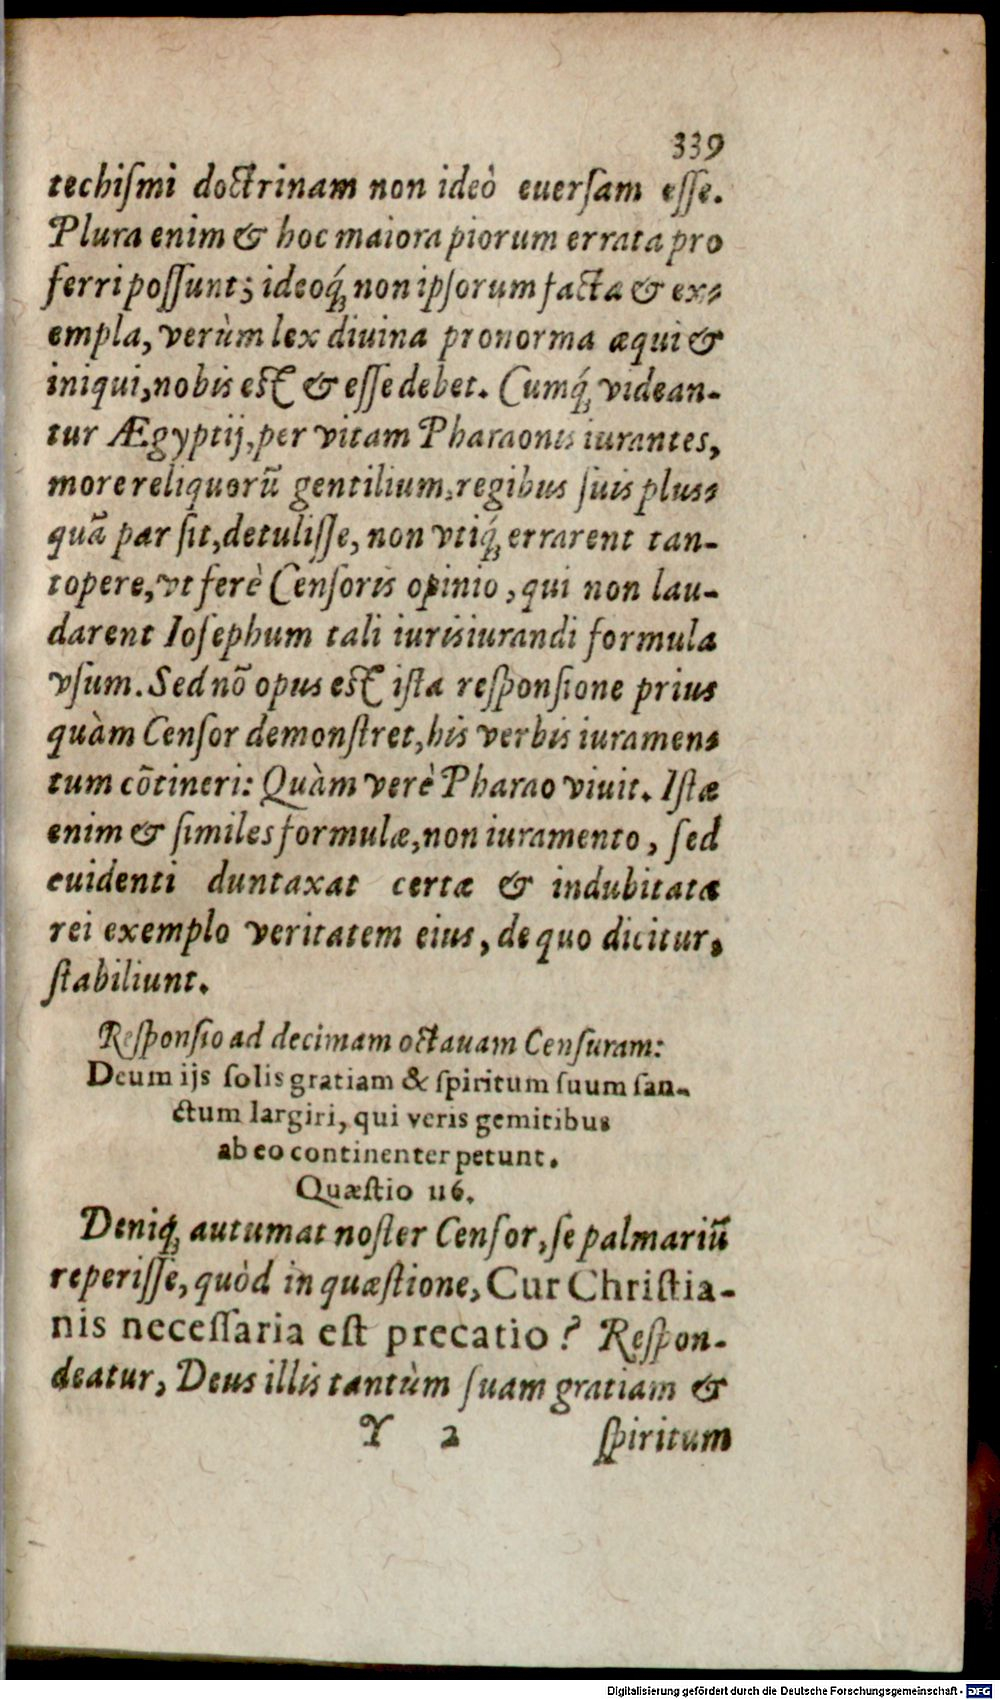 339
techiſmi doctrinam non ideò euerſam eſſe.
Plura enim & hoc maiora piorum errata pro
ferri poſſunt; ideoq́; non ipſorum facta & ex-
empla, verùm lex diuina pro norma æqui &
iniqui, nobis eſt & eſſe debet. Cumq́; videan-
tur Ægyptij, per vitam Pharaonis iurantes,
more reliquorũ gentilium, regibus ſuis plus-
quã par ſit, detuliſſe, non vtiq́; errarent tan-
topere, vt ferè Cenſoris opinio, qui non lau-
darent Ioſephum tali iurisiurandi formula
vſum. Sed nõ opus eſt iſta reſponſione prius
quàm Cenſor demonſtret, his verbis iuramen-
tum cõtineri: Quàm verè Pharao viuit. Iſtæ
enim & ſimiles formulæ, non iuramento, ſed
euidenti duntaxat certæ & indubitatæ
rei exemplo veritatem eius, de quo dicitur,
ſtabiliunt.
Reſponſio ad decimam octauam Cenſuram:
Deum ijs ſolis gratiam & ſpiritum ſuum ſan-
ctum largiri, qui veris gemitibus
ab eo continenter petunt.
Quæſtio 116.
Deniq́; autumat noſter Cenſor, ſe palmariũ
reperiſſe, quòd in quæſtione, Cur Chriſtia-
nis neceſſaria eſt precatio? Reſpon-
deatur, Deus illis tantùm ſuam gratiam &
Y 2 ſpiritum
Digitalisierung gefördert durch die Deutsche Forschungsgemeinschaft - DFG